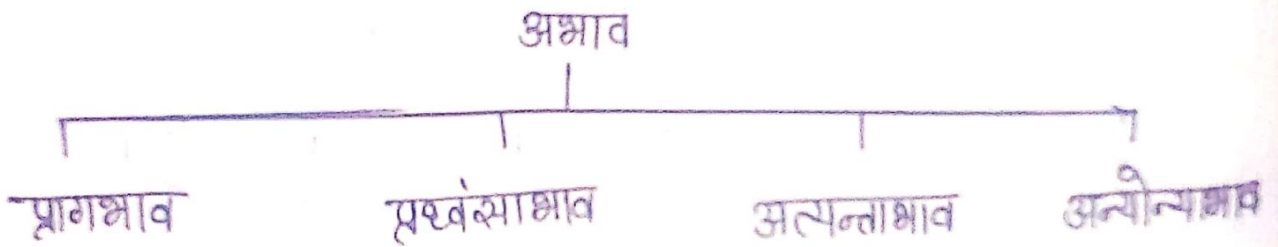 अभाव
प्रागभाव प्रध्वंसाभाव अत्यन्ताभाव अन्योन्याभाव